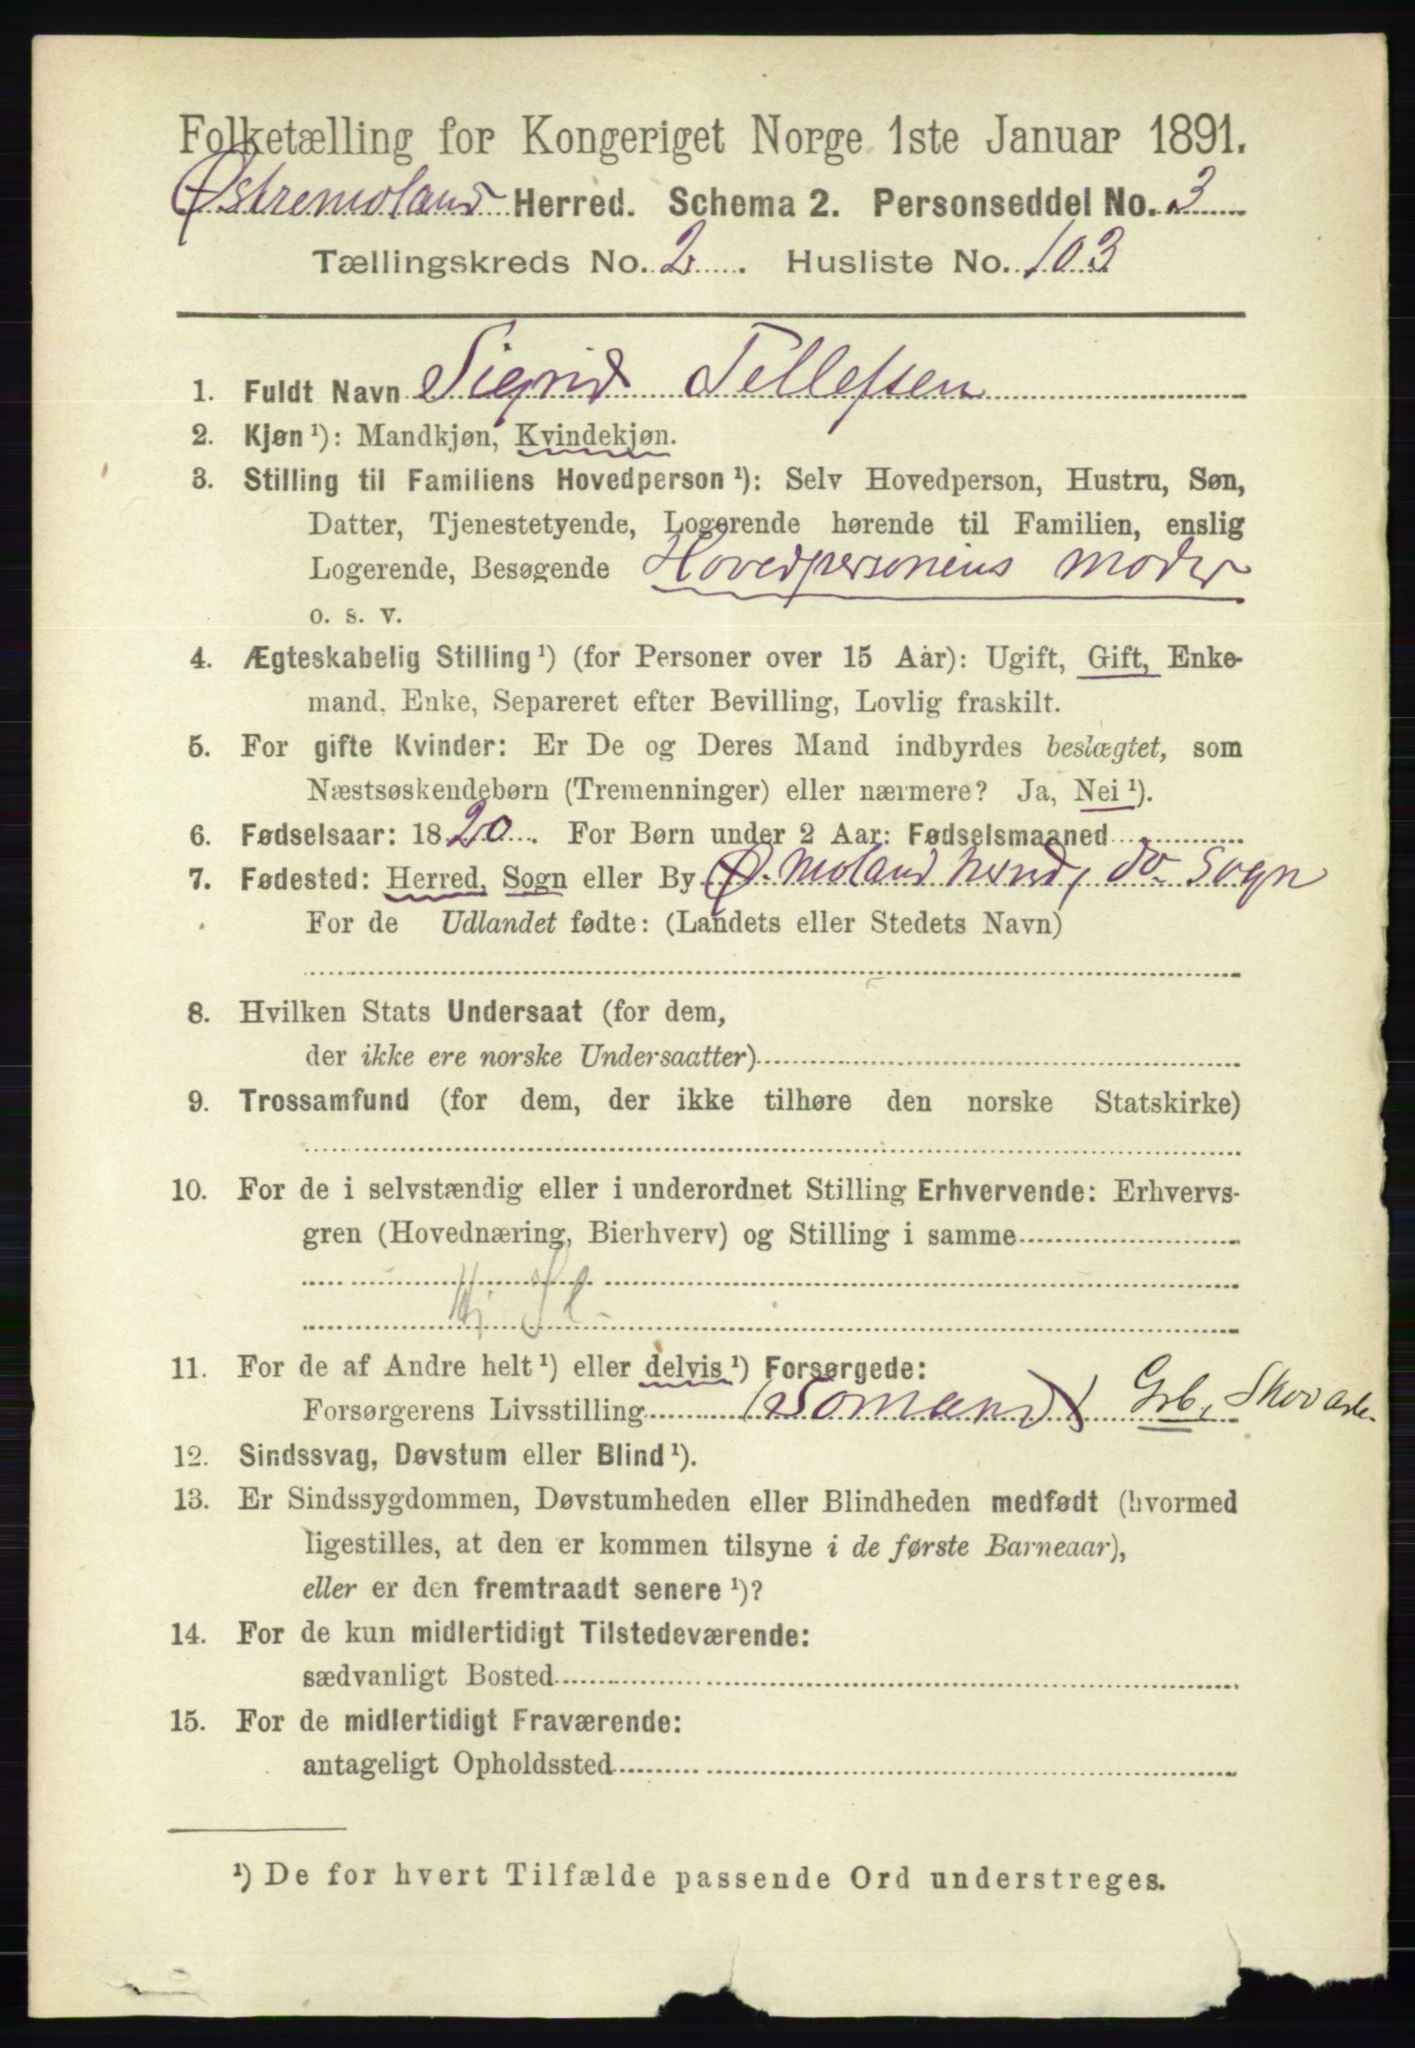 Folketælling for Kongeriget Norge 1ste Januar 1891.
Østremoland Herred. Schema 2. Personseddel No. 3
Tællingskreds No. 2. Husliste No. 103
1. Fuldt Navn Sigrid Tellefsen
2. Kjøn ¹): Mandkjøn, Kvindekjøn.
3. Stilling til Familiens Hovedperson ¹): Selv Hovedperson, Hustru, Søn,
Datter, Tjenestetyende, Logerende hørende til Familien, enslig
Logerende, Besøgende Hovedpersonens moder
o. s. v.
4. Ægteskabelig Stilling ¹) (for Personer over 15 Aar): Ugift, Gift, Enke-
mand, Enke, Separeret efter Bevilling, Lovlig fraskilt.
5. For gifte Kvinder: Er De og Deres Mand indbyrdes beslægtet, som
Næstsøskendebørn (Tremenninger) eller nærmere? Ja, Nei ¹).
6. Fødselsaar: 1820. For Børn under 2 Aar: Fødselsmaaned
7. Fødested: Herred, Sogn eller By Ø. Moland herred, do Sogn
For de Udlandet fødte: (Landets eller Stedets Navn)
8. Hvilken Stats Undersaat (for dem,
der ikke ere norske Undersaatter)
9. Trossamfund (for dem, der ikke tilhøre den norske Statskirke)
10. For de i selvstændig eller i underordnet Stilling Erhvervende: Erhvervs-
gren (Hovednæring, Bierhverv) og Stilling i samme
11. For de af Andre helt ¹) eller delvis ¹) Forsørgede:
Forsørgerens Livsstilling (Somand) Grb,
12. Sindssvag, Døvstum eller Blind ¹).
13. Er Sindssygdommen, Døvstumheden eller Blindheden medfødt (hvormed
ligestilles, at den er kommen tilsyne i de første Barneaar),
eller er den fremtraadt senere ¹)?
14. For de kun midlertidigt Tilstedeværende:
sædvanligt Bosted
15. For de midlertidigt Fraværende:
antageligt Opholdssted
¹) De for hvert Tilfælde passende Ord understreges.